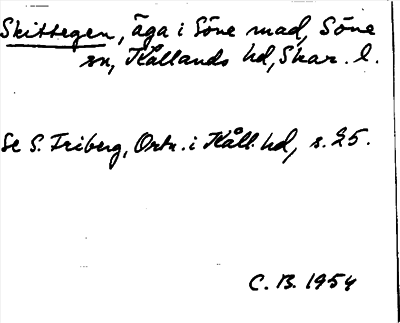 Skittegen, äga i Söne mad, Söne
sn, Kållands hd, Skar. l.
Se S. Friberg, Ortn. i Kåll. hd, s. 25.
C. B. 1954